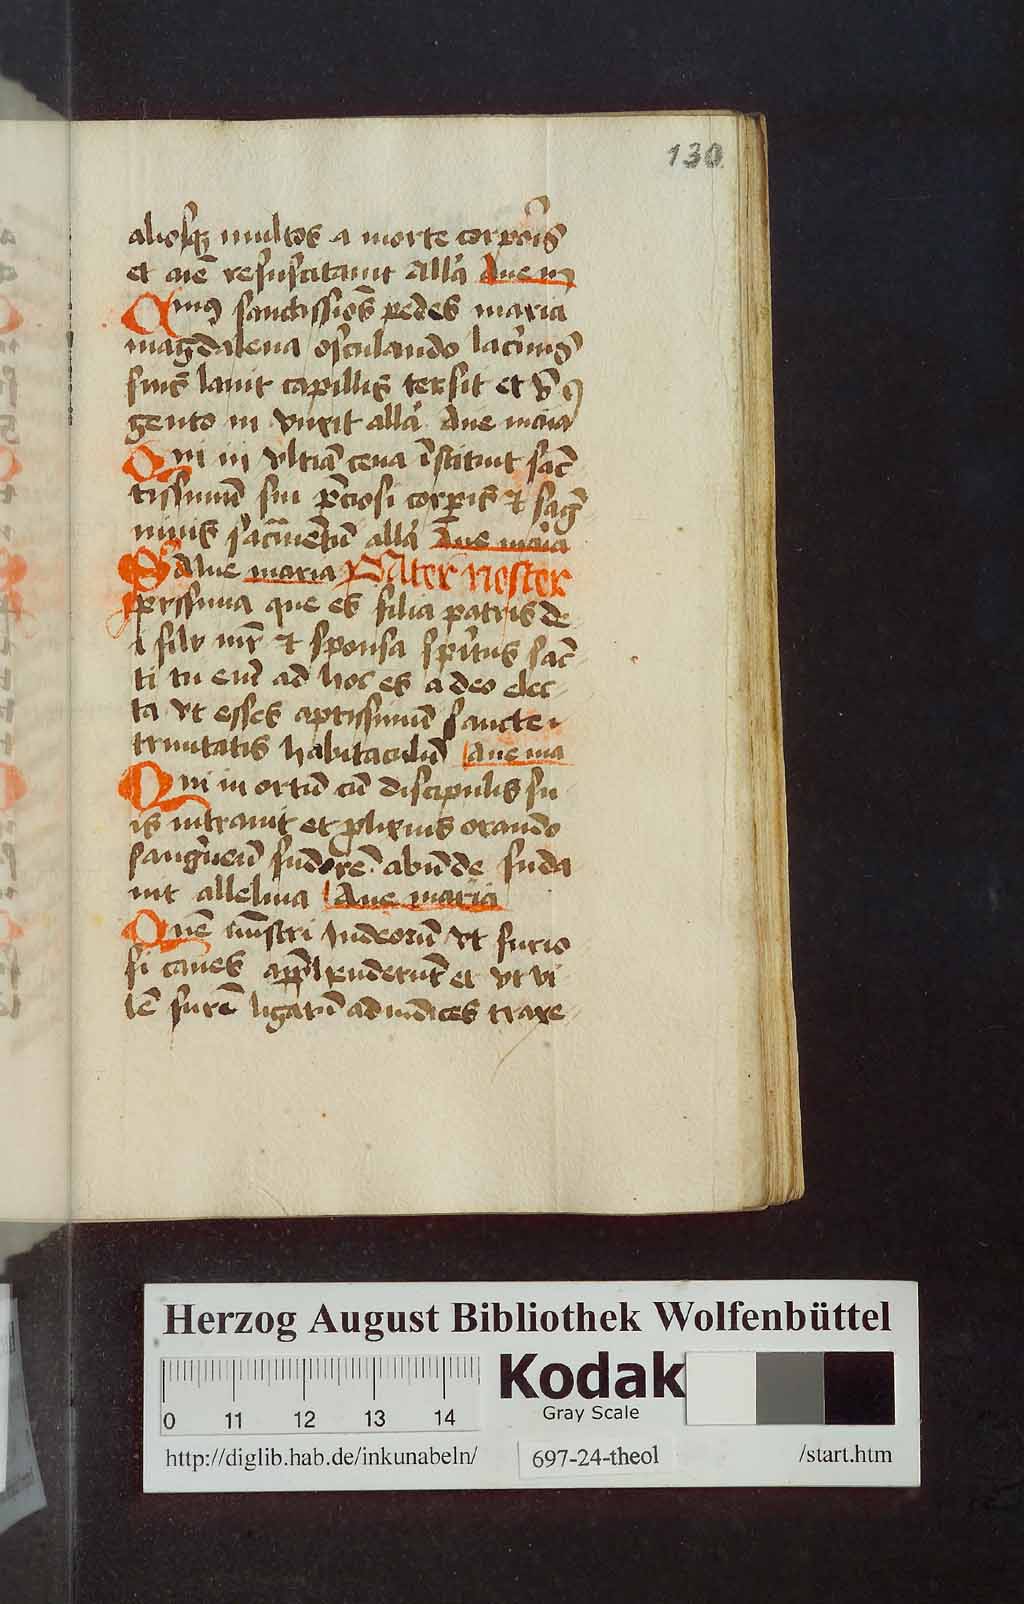 130
aliosq3 multos a morte corporis
et aīe resuscitauit Alla Aue m
Cuius sanctissiōs pedes maria
magdalena osculando lacrimis
suis lauit capillis tersit et vn
gento in vnxit alla Aue maia
Qui in vltiā cena īstituit sāc
tissimū sui p̄ciosi corp̄is et sag̃
minis sacmentū alla Aue maia
SAlue maria PAter noster
que es filia patris de
i mr̄ et sponsa spiritus sāc
ti tu enī ad hoc es a deo elec
ta vt esses aptissimū sancte
trinitatis habitaculū Aue ma
Qui in ortū cū discipulis su
is intrauit et plixius orando
sanguineū sudorē abūde suda
uit alleluia Aue maria
Quē mīstri Iudeorū vt furio
si canes app̄henderūt et vt vi
lē furē ligatū ad iudices traxe
Herzog August Bibliothek Wolfenbüttel
Kodak
Gray Scale
0 11 12 13 14
http://diglib.hab.de/inkunabeln/ 697-24-theol /start.htm